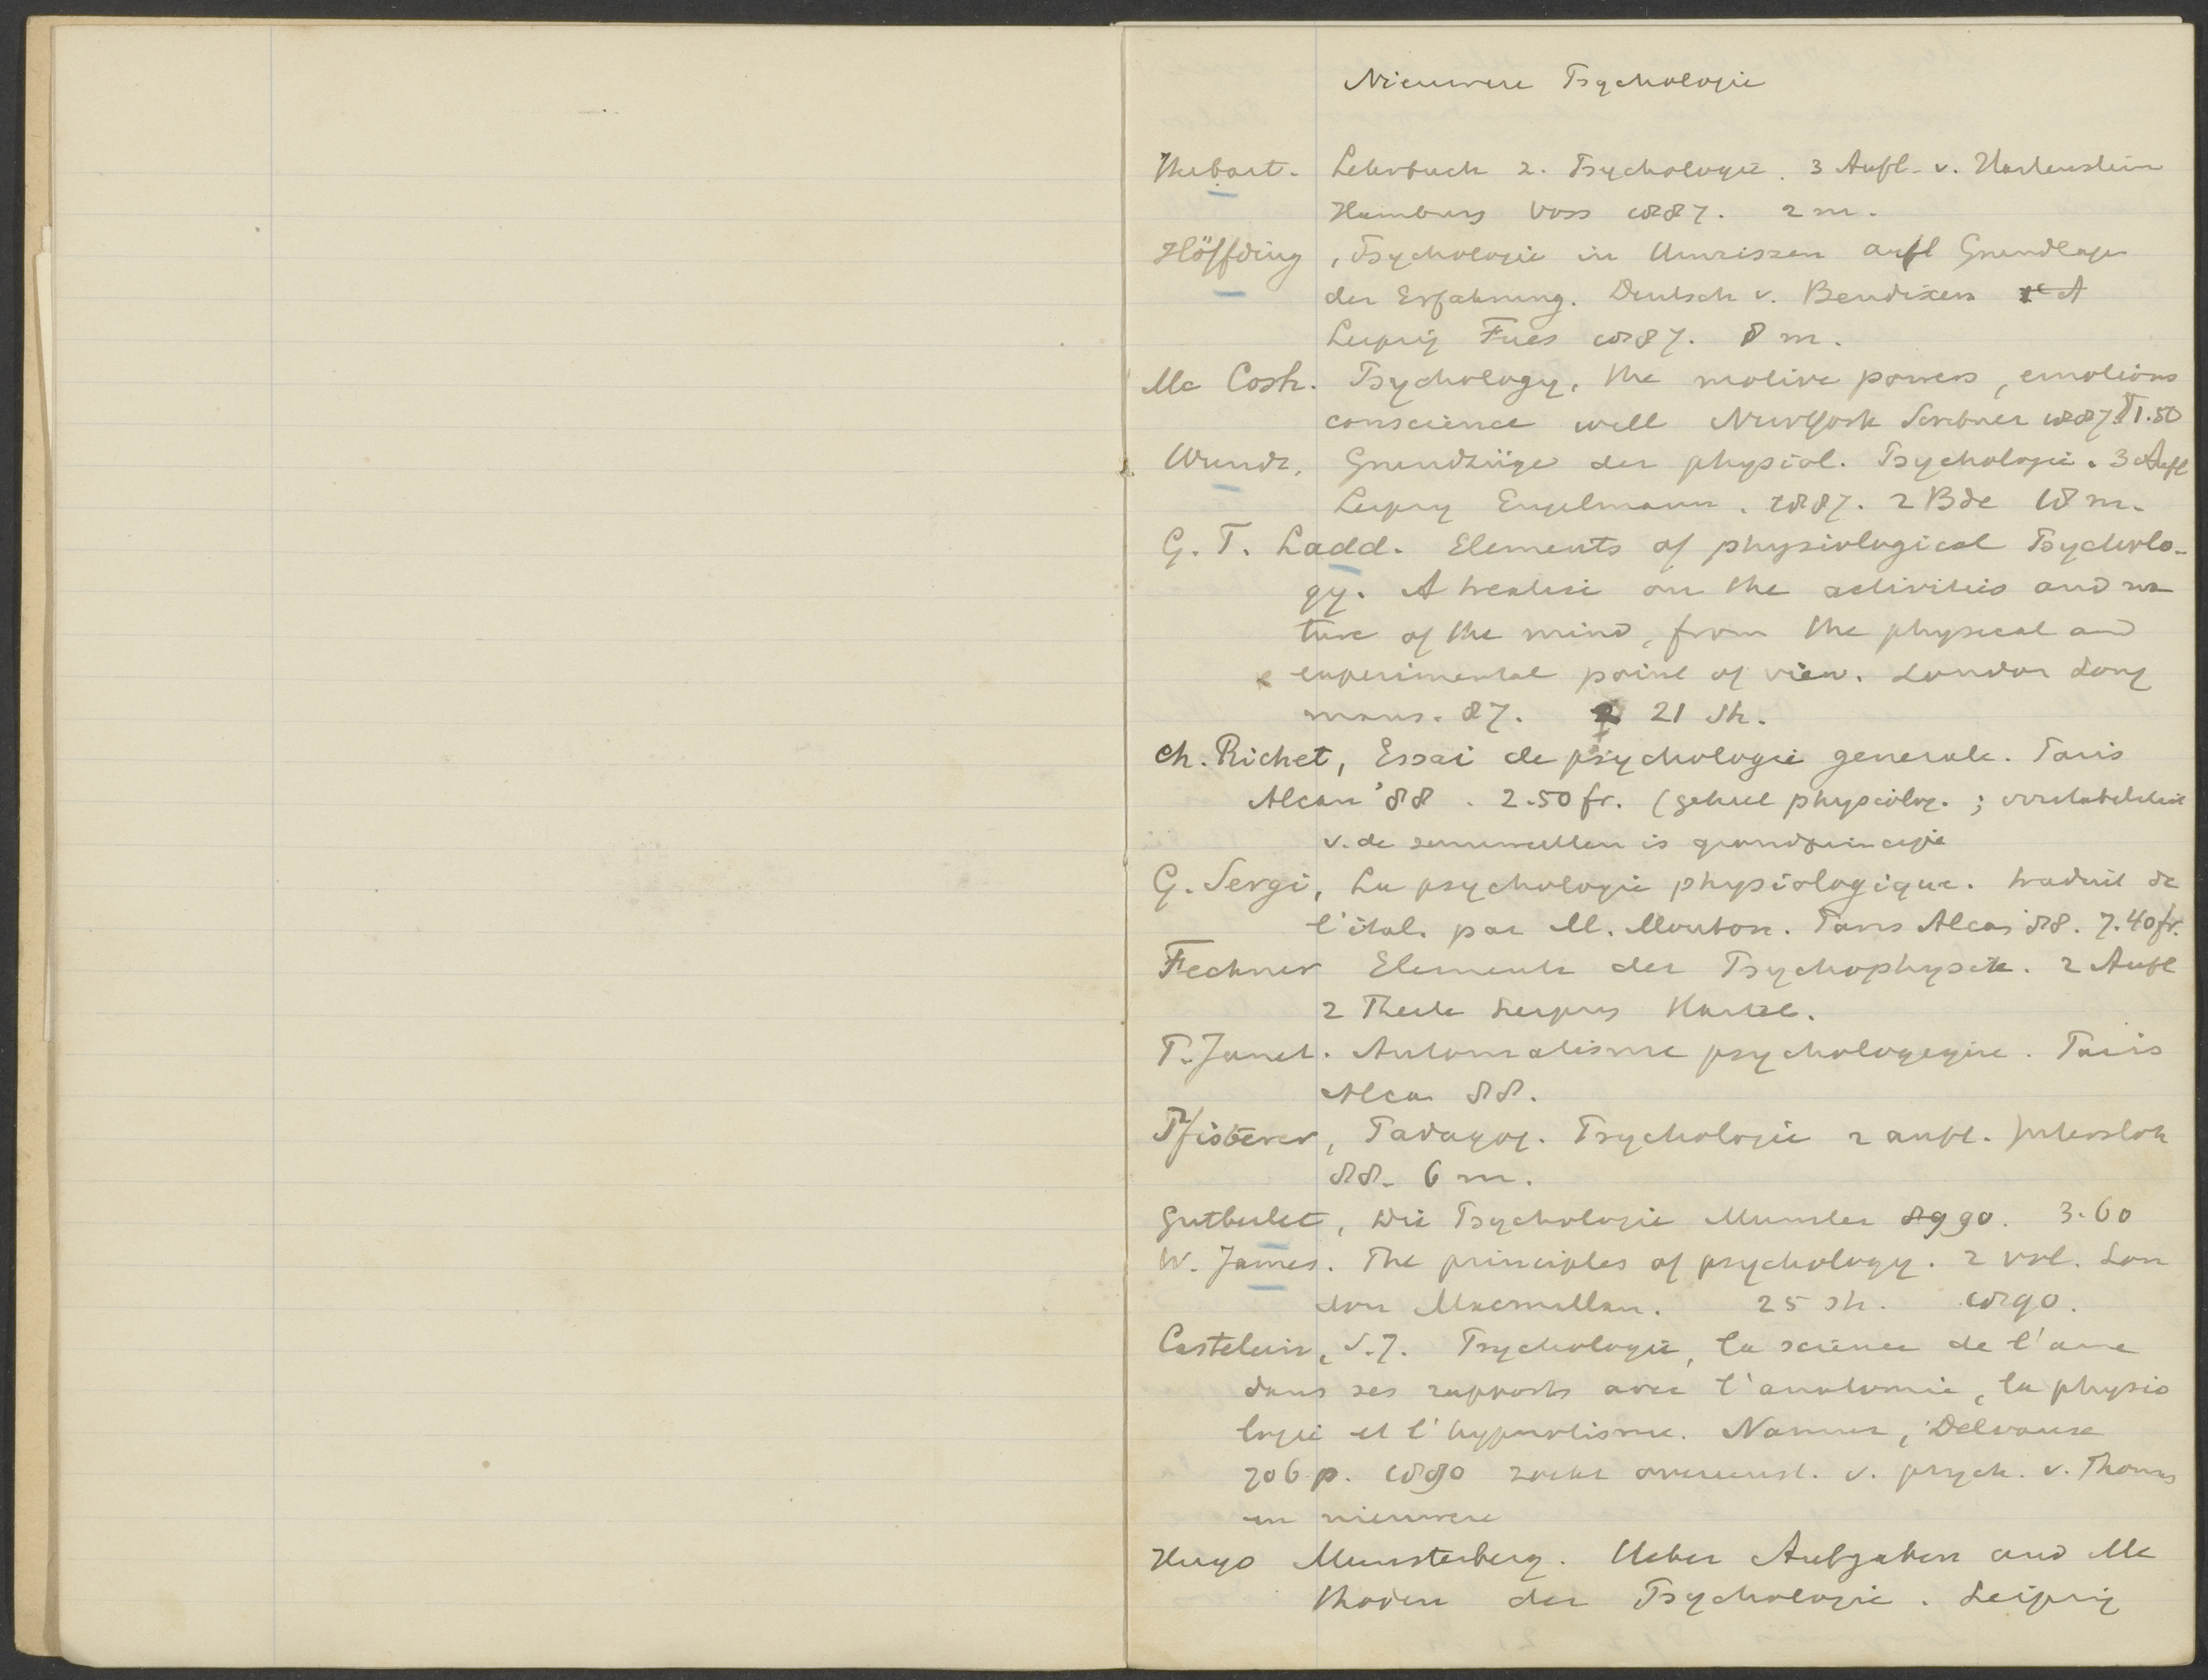 Nieuwere Psychologie
Herbart. Lehrbuch z. Psychologie. 3 Aufl. v. Hartenstein
Hamburg Voss 1887. 2 m.
Höffding, Psychologie in Umrissen auf Grundlage
der Erfahrung. Deutsch v. Bendixen
Leipzig Fues 1887. 8 m.
Mc Cosh. Psychology, the motive powers, emotions
conscience will NewYork Scribner 1887. $1.50
Wundt, Grundzüge der physiol. Psychologie. 3 Aufl
Leipzig Engelmann. 1887. 2 Bde 18 m.
G. T. Ladd. Elements of physiological Psycholo-
gy. A treatise on the activities and na
ture of the mind, from the physical and
experimental point of view. London Long
mans. 87. 21 Sh.
Ch. Richet, Essai de psychologie generale. Paris
Alcan '88. 2.50 fr. (geheel physiolog.; prikkelbaarheid
v. de zenuwcellen is grondprincipe
G. Sergi, La psychologie physiologique. traduit de
l'ital. par M. Mouton. Paris Alcan '88. 7.40 fr.
Fechner Elemente der Psychophysik. 2 Aufl
2 Theile Leipzig Hartel.
P. Janet. Automatisme psychologique. Paris
Alcan 88.
Pfisterer, Padagog. Psychologie 2 aufl. Gutersloh
88. 6 m.
Gutberlet, Die Psychologie Munster 89 90. 3.60
W. James. The principles of psychology. 2 vol. Lon
don Macmillan. 25 sh. 1890.
Castelein, S.J. Psychologie, la science de l'ame
dans ses rapports avec l'anatomie, la physio
logie et l'hypnotisme. Namur, Delvaux
706 p. 1890 zoekt overeenst. v. psych. v. Thomas
en nieuwere
Hugo Munsterberg. Ueber Aufgaben und Me
thoden der Psychologie. Leipzig